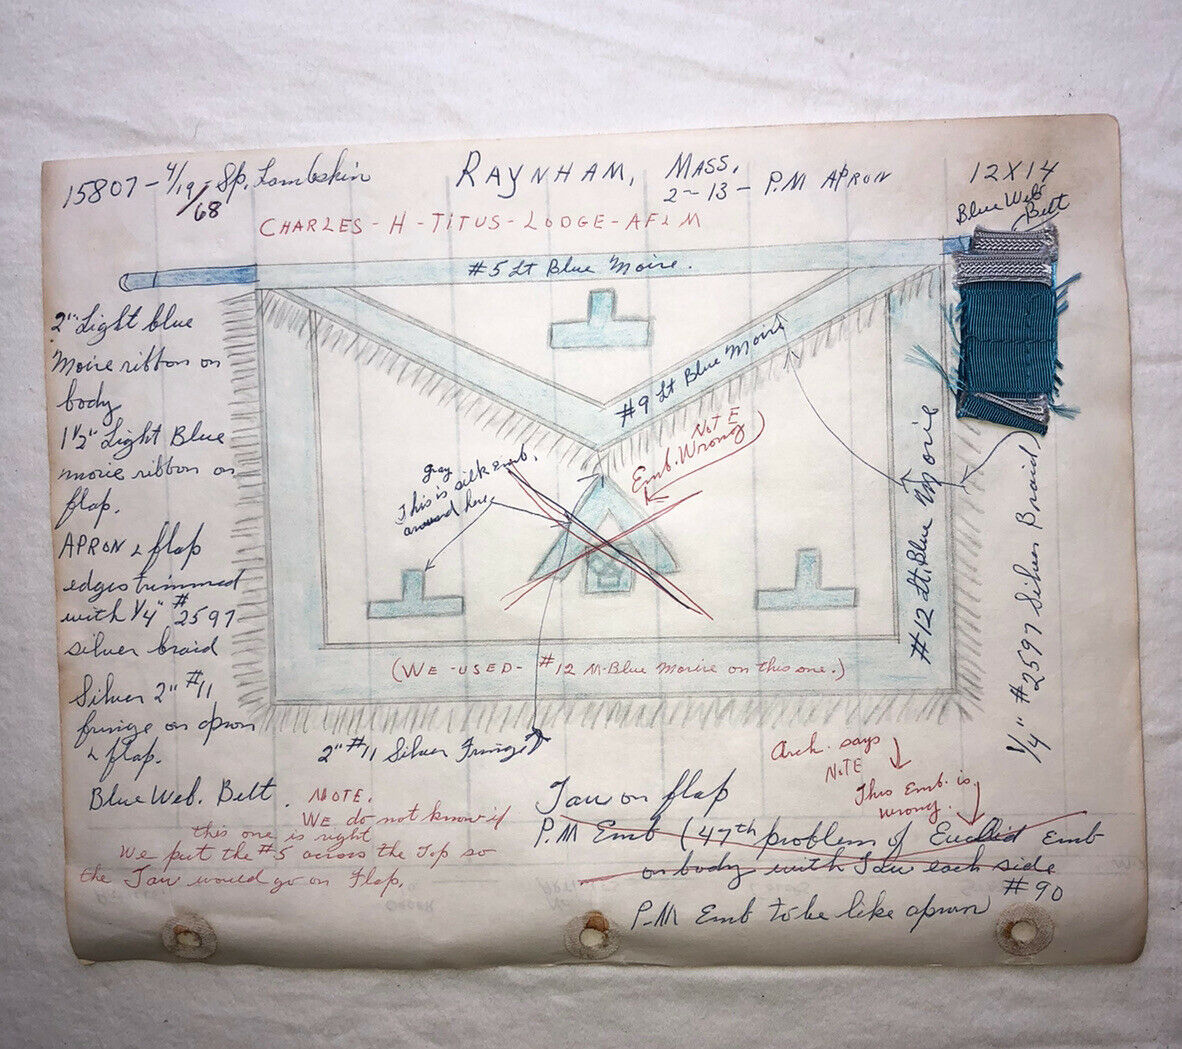 15807 - 4/19/68 - Sp. Lambskin
RAYNHAM, MASS.
2-13 - P.M APRON
12X14
Blue Web
Belt
CHARLES - H - TITUS - LODGE - AF&M
#5 Lt Blue Moire.
2" Light blue
Moire ribbon on
body
1 1/2" Light Blue
moire ribbon on
flap.
APRON & flap
edges trimmed
with 1/4" #2597
silver braid
Silver 2" #11
fringe on apron
& flap.
Blue Web. Belt.
#9 Lt Blue Moire
NOTE
Emb. Wrong
gray
This is silk emb.
around here
#12 Lt. Blue Moire
1/4" #2597 Silver Braid
(WE - USED - #12 M-Blue Morire on this one.)
2" #11 Silver Fringe
NOTE.
WE do not know if
this one is right
We put the #5 across the Top so
the Tau would go on Flap.
Arch. says
NOTE
This Emb. is
wrong.
Tau on flap
P.M Emb (47th problem of Euclid Emb
on body with Tau each side
#90
P-M Emb to be like apron